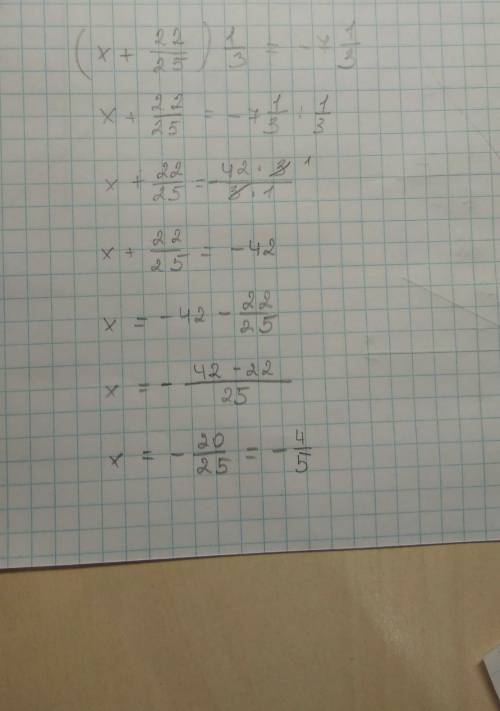 (x + 22/25) 1/3 = - 4 1/3
x + 22/25 = - 4 1/3 : 1/3
x + 22/25 = - 42 · 3 / 3 · 1 1
x + 22/25 = - 42
x = - 42 - 22/25
x = - 42 - 22 / 25
x = - 20/25 = - 4/5